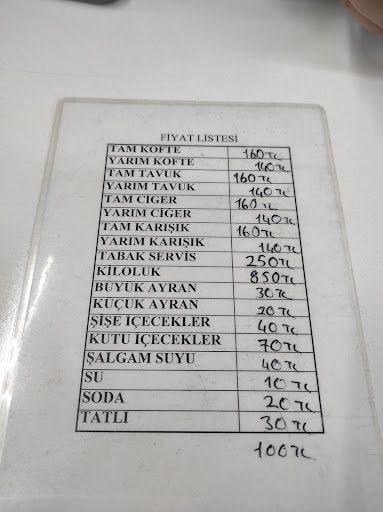 FİYAT LİSTESİ
TAM KOFTE 160 TL
YARIM KOFTE 140 TL
TAM TAVUK 160 TL
YARIM TAVUK 140 TL
TAM CIGER 160 TL
YARIM CİGER 140 TL
TAM KARIŞIK 160 TL
YARIM KARIŞIK 140 TL
TABAK SERVİS 250 TL
KİLOLUK 850 TL
BUYUK AYRAN 30 TL
KUÇUK AYRAN 20 TL
ŞİŞE İÇECEKLER 40 TL
KUTU İÇECEKLER 70 TL
ŞALGAM SUYU 40 TL
SU 10 TL
SODA 20 TL
TATLI 30 TL
100 TL